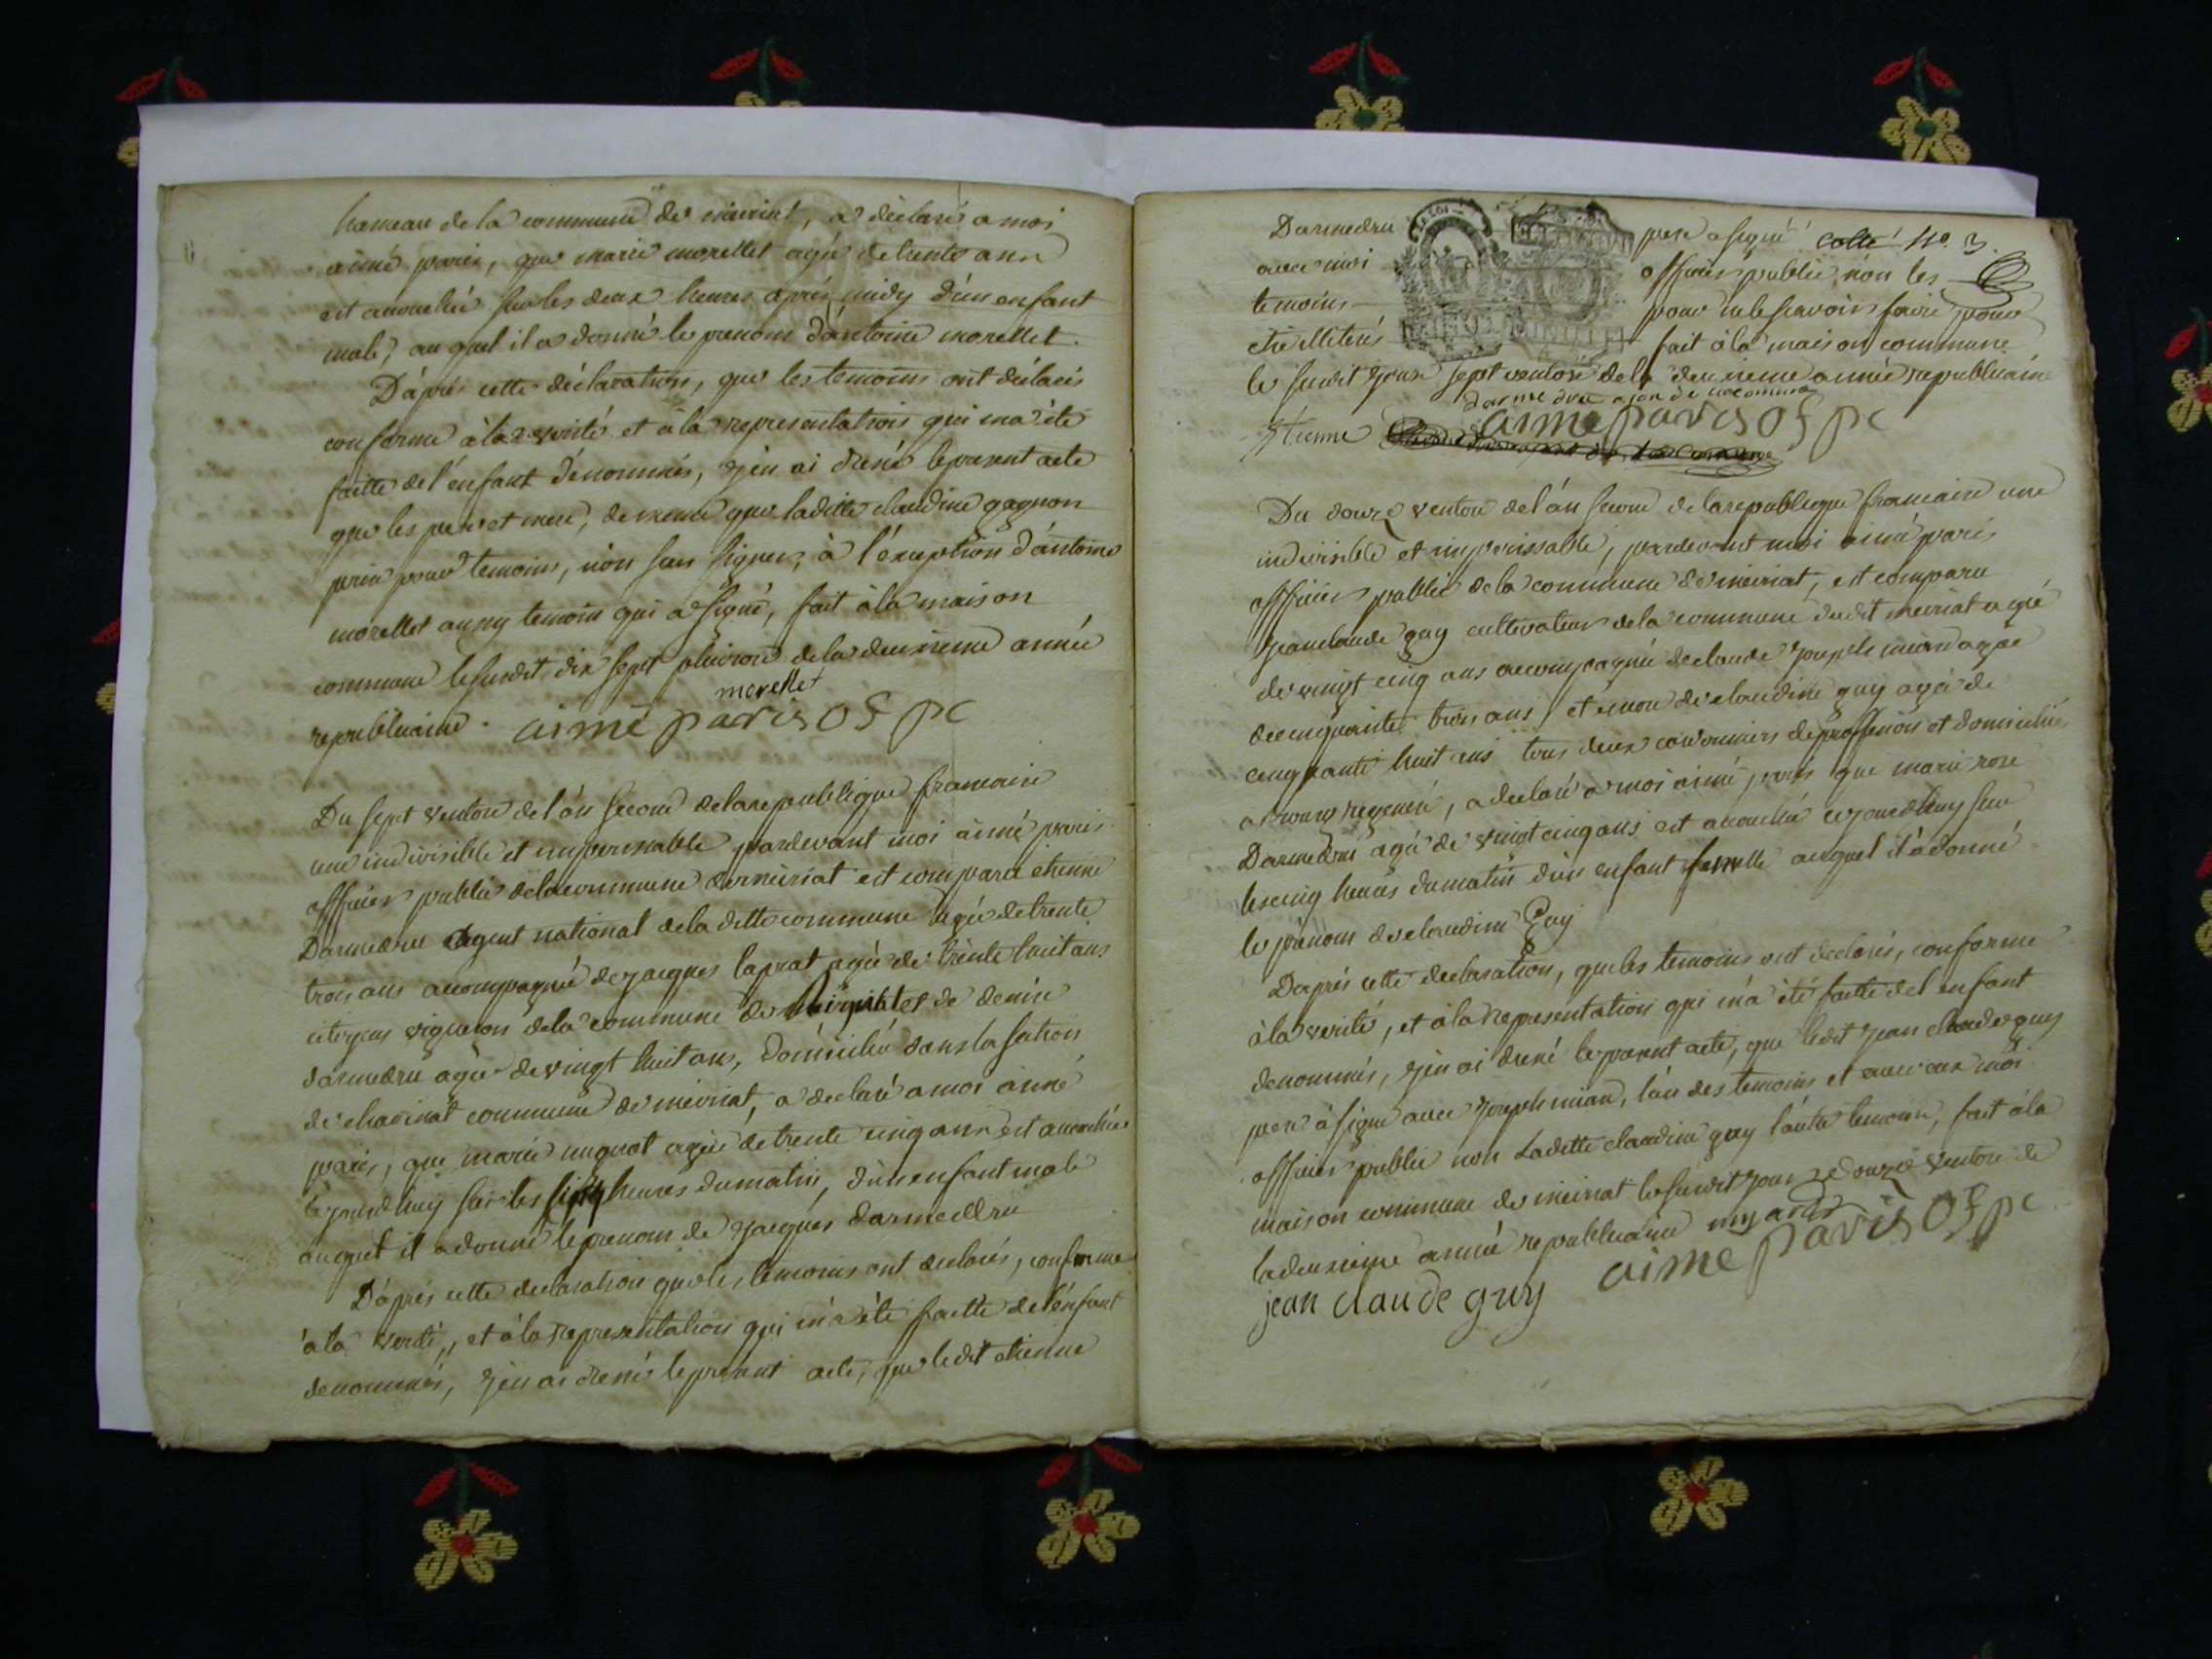 hameau de la commune de meiriat, a déclaré a moi
aimé paris, que marie morellet agée de trente ans
est accouchée sur les deux heures après midy d'un enfant
male, auquel il a donné le prenom d'antoine morellet.
D'aprés cette déclaration, que les temoins ont déclarés
conforme à la verité et à la representation qui m'a été
faitte de l'enfant dénommés, j'en ai dressé le present acte
que les pere et mere, de meme que laditte claudine gagnon
prise pour temoins, n'on seu signer, à l'exception d'antoine
morellet aussy temoin qui a signé, fait à la maison
commune le susdit dix sept pluviose de la deuxieme année
republicaine. morellet
aimé paris OF pc
Du sept ventose de l'an second de la republique francaise
une indivisible et imperissable pardevant moi aimé paris
officier public de la commune de meiriat est comparu etienne
Darmedru agent national de la ditte commune agé de trente
trois ans accompagné de jacques laprat agé de trente huit ans
citoyens vigneron de la commune de et de denise
darmedru agée de vingt huit ans, domicilié dans la section
de chavinat commune de meiriat, a declaré a moi aimé
paris, que marie muguet agée de trente cinq ans est accouchée
ce jourdhuy sur les heures du matin, d'un enfant male
auquel il a donné le prenom de jacques darmedru
D'aprés cette declaration que les temoins ont declarés, conforme
à la verité, et à la representation qui m'a été faitte de l'enfant
denommés, j'en ai dressé le present acte, que ledit etienne
Darmedru pere a signé cotté No. 3.
avec moi officier public, n'on les
temoins pour ne le scavoir faire pour
etre illiterés fait à la maison commune
le susdit jour sept ventose de la deuxieme année republicaine
Etienne darmedru agen de la commune
aimé paris OF pc
Du douze ventose de l'an second de la republique francaise une
indivisible et imperissable, pardevant moi aimé paris
officier public de la commune de meiriat, est comparu
jean claude guy cultivateur de la commune dudit meiriat agé
de vingt cinq ans accompagné de claude joseph agé
de cinquante trois ans et de claudine guy agée de
cinquante huit ans tous deux cordonniers de profession et domiciliés
a , a declaré a moi aimé paris que marie rose
Darmedru agée de vingt cinq ans est accouchée ce jourdhuy sur
les cinq heures du matin d'un enfant femelle auquel il a donné
le prénom de claudine Guy
D'aprés cette declaration, que les temoins ont declarés, conforme
à la verité, et à la representation qui m'a été faitte de l'enfant
denommés, j'en ai dressé le present acte, que ledit jean claude guy
pere a signé avec joseph , l'un des temoins et avec eux moi
officier public non laditte claudine guy l'autre temoins, fait à la
maison commune de meiriat le susdit jour douze ventose de
la deuxieme année republicaine
jean claude guy aimé paris OF pc